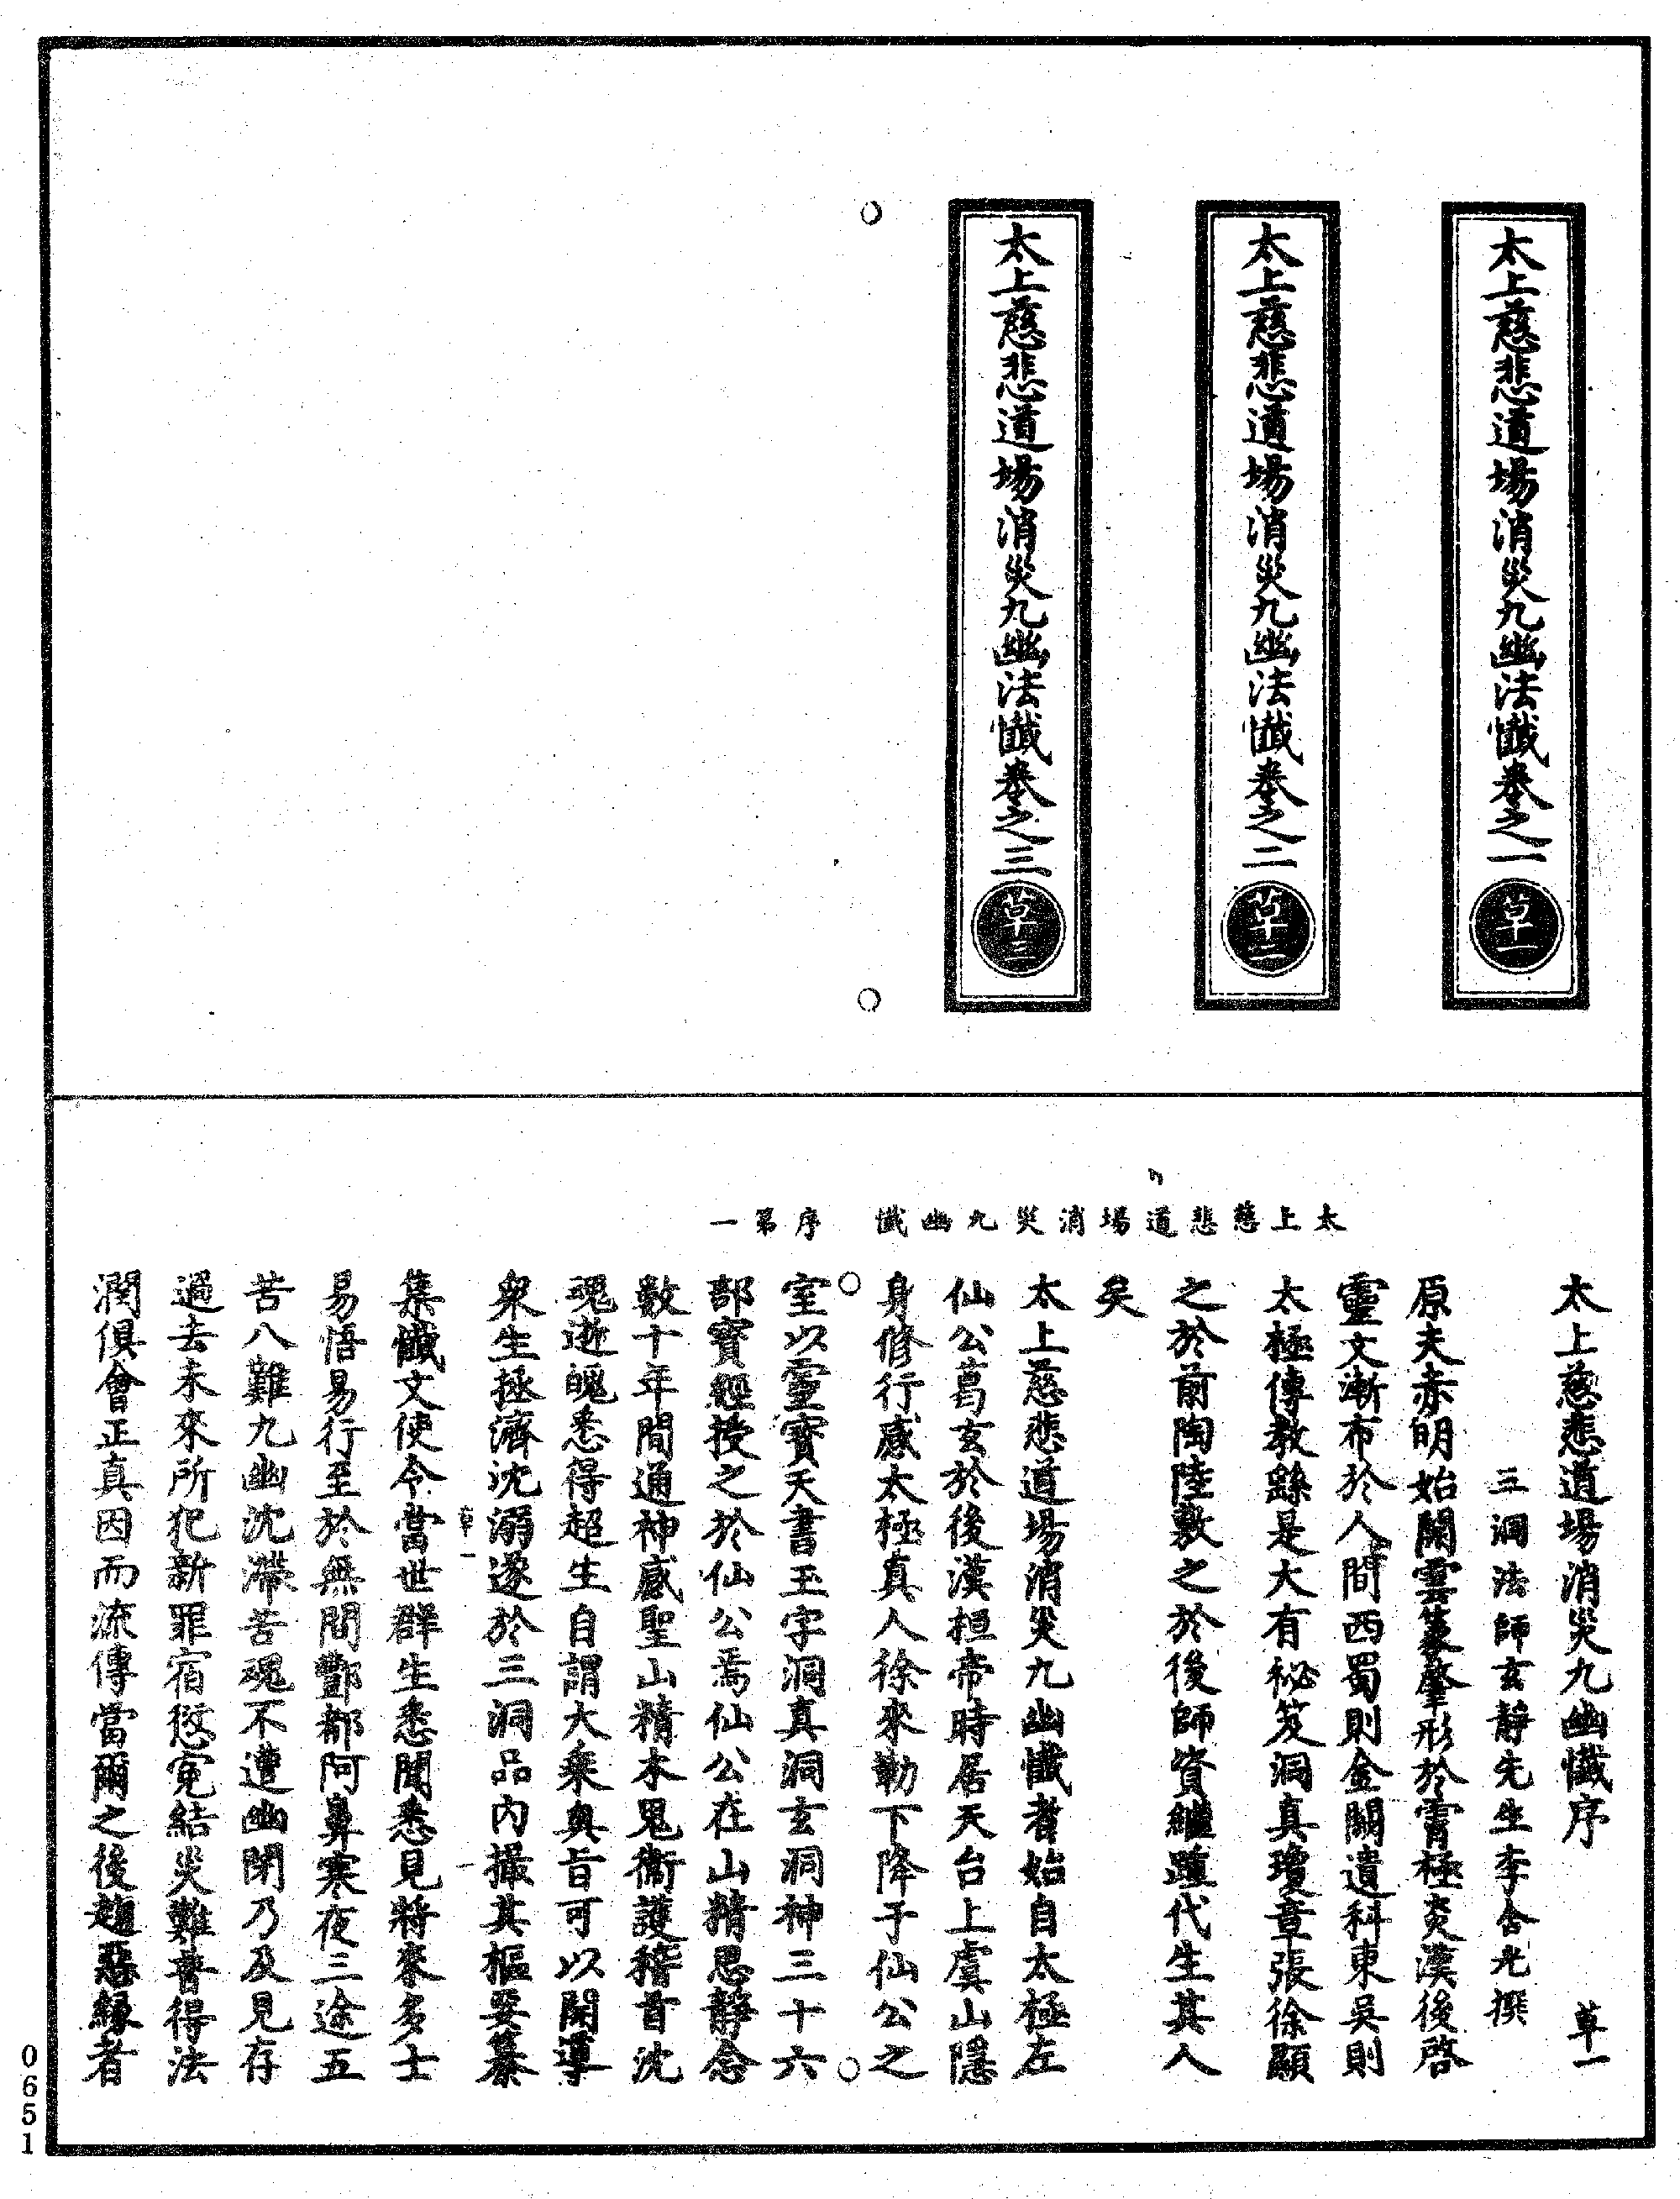 太上慈悲道場消災九幽法懺卷之一
草一
太上慈悲道場消災九幽法懺卷之二
草二
太上慈悲道場消災九幽法懺卷之三
草三
太上慈悲道場消災九幽懺 序 第一
太上慈悲道場消災九幽懺序 草一
三洞法師玄靜先生李含光撰
原夫赤明始開雲篆肇形於霄極炎漢後啓
靈文漸布於人間西蜀則金闕遺科東吳則
太極傳教繇是大有祕笈洞真瓊章張徐顯
之於前陶陸敷之於後師資繼踵代生其人
矣
太上慈悲道場消災九幽懺者始自太極左
仙公葛玄於後漢桓帝時居天台上虞山隱
身修行感太極真人徐來勒下降于仙公之
室以靈寶天書玉字洞真洞玄洞神三十六
部寶經授之於仙公焉仙公在山精思靜念
數十年間通神感聖山精木鬼衛護稽首沈
魂逝魄悉得超生自謂大乘奧旨可以開導
衆生拯濟沈溺遂於三洞品內撮其樞要纂
草一 一
集懺文使令當世群生悉聞悉見將來多士
易悟易行至於無間酆都阿鼻寒夜三途五
苦八難九幽沈滯苦魂不遭幽閉乃及見存
過去未來所犯新罪宿愆冤結災難普得法
潤俱會正真因而流傳當爾之後趨惡緣者
0651